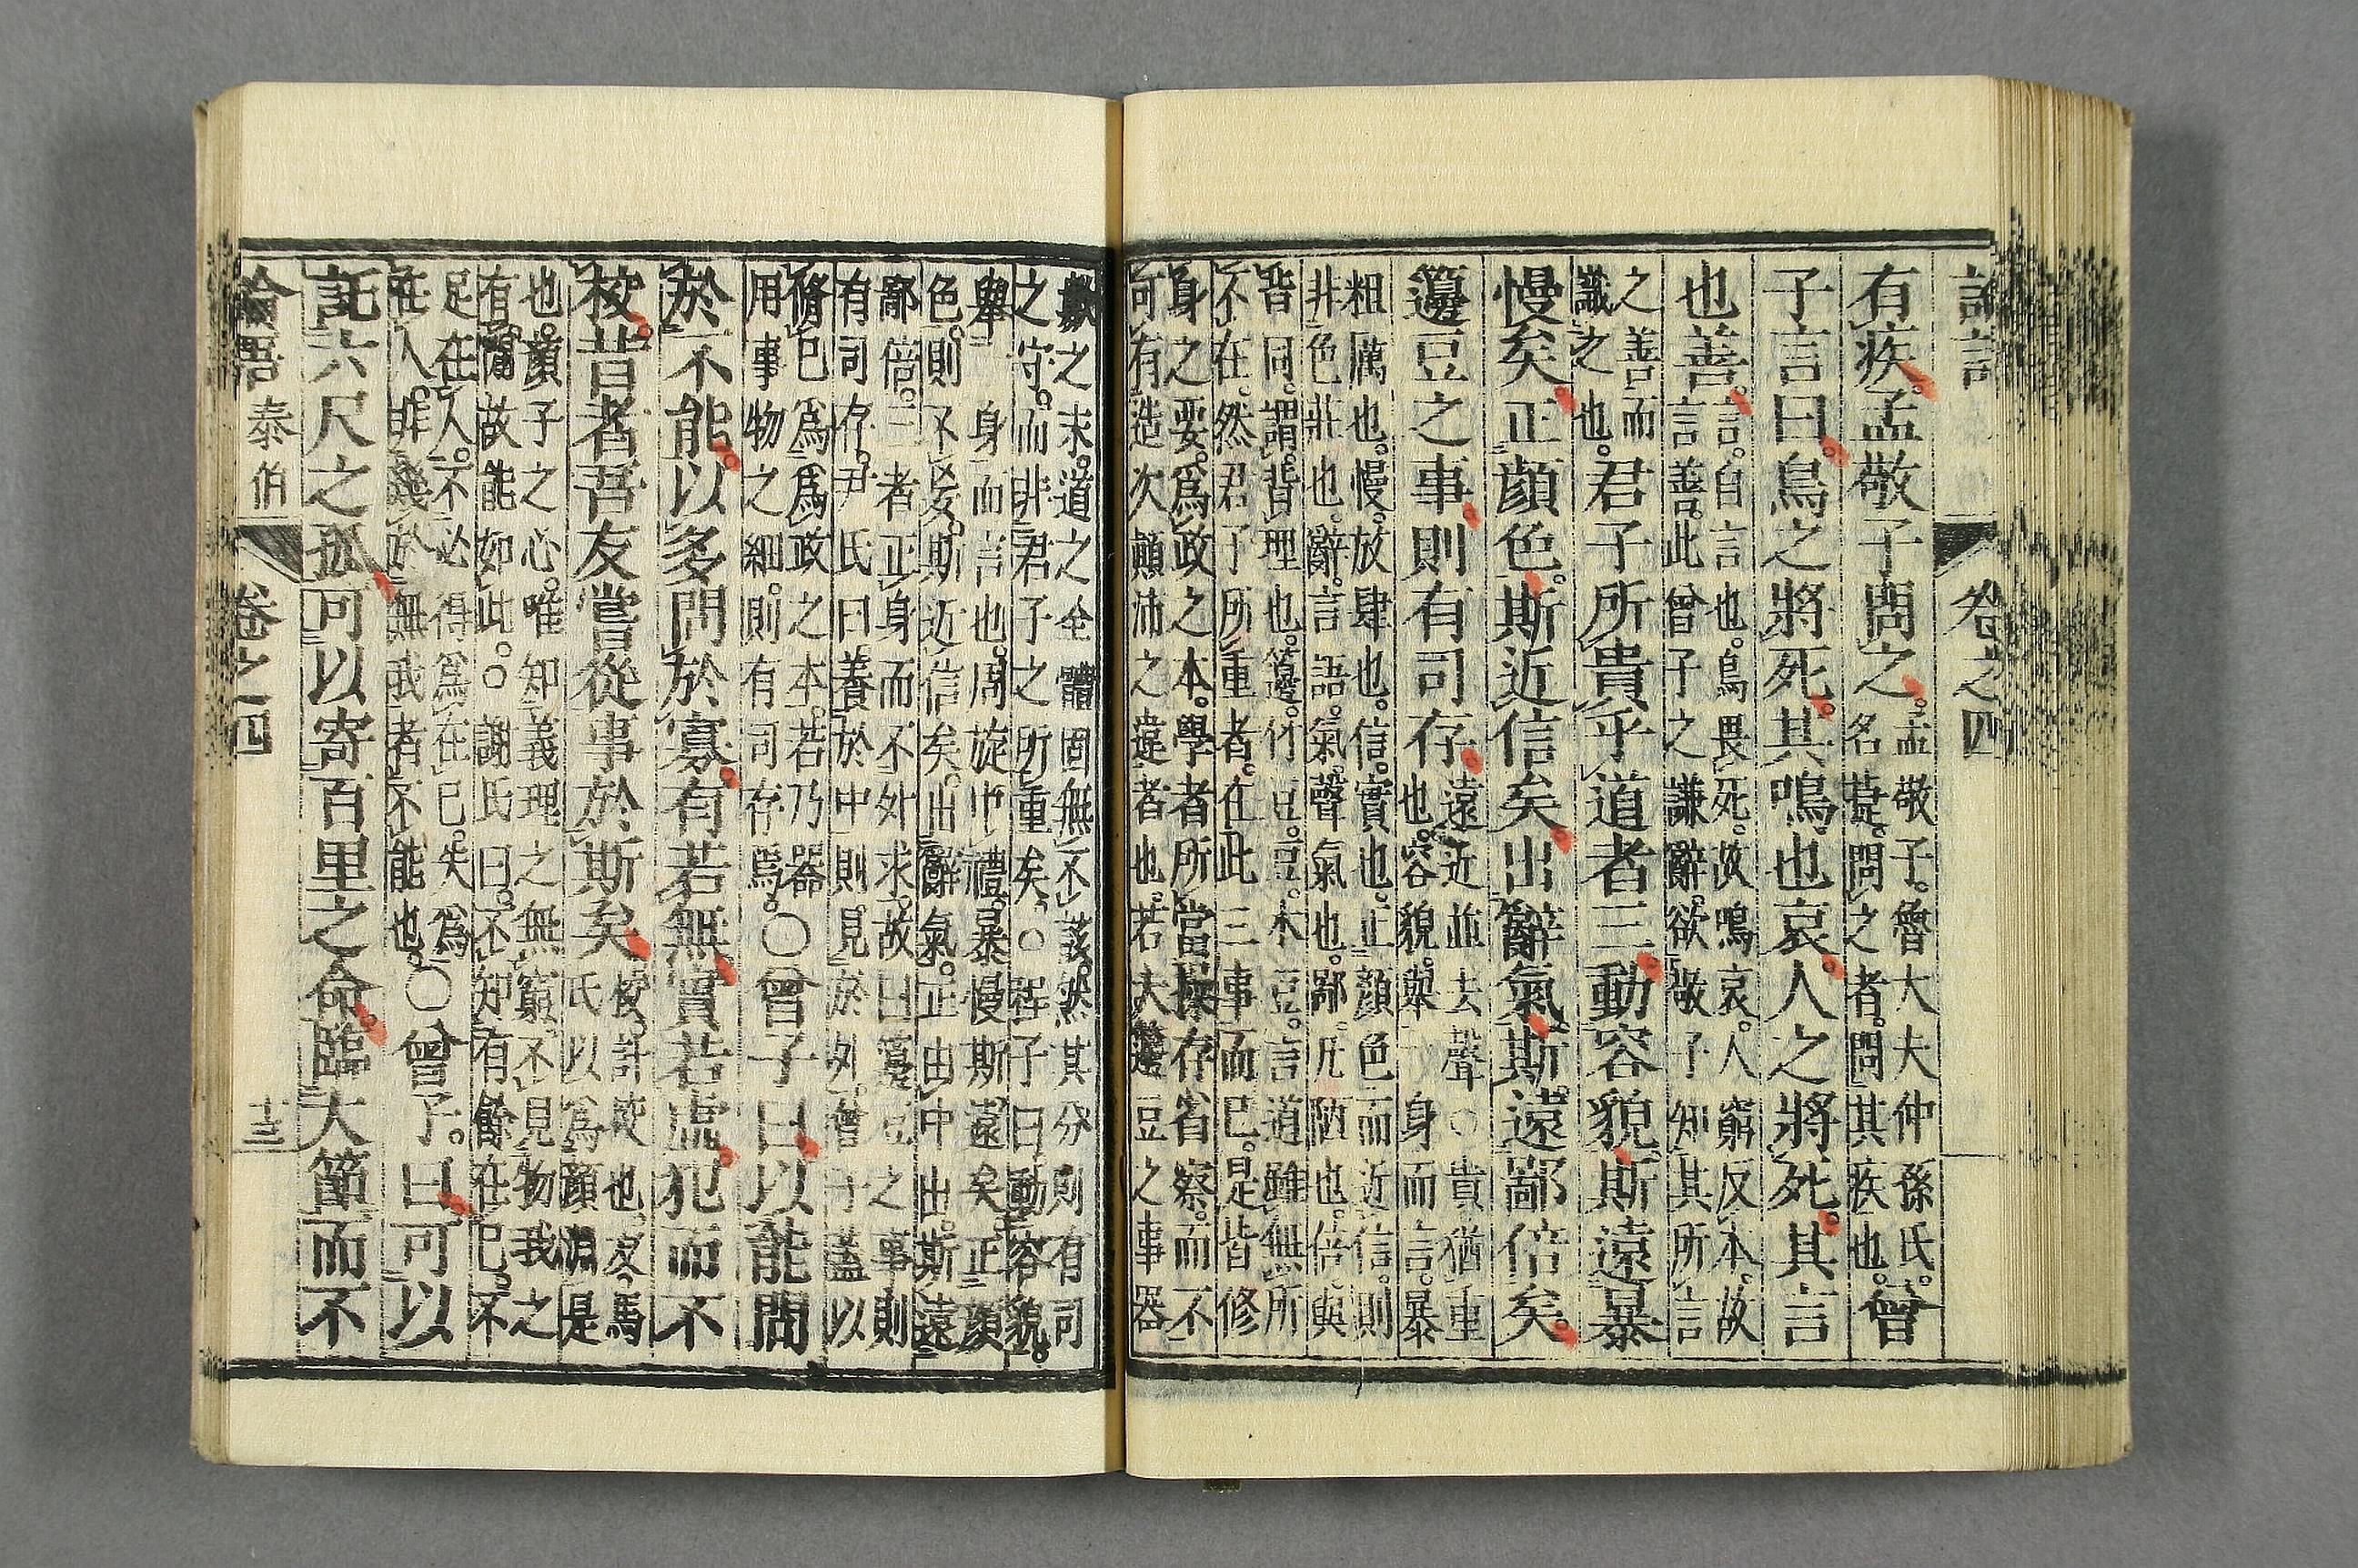 論語　卷之四
有疾。孟敬子問之。孟敬子。魯大夫仲孫氏。名捷。問之者。問其疾也。曾
子言曰。鳥之將死。其鳴也哀。人之將死。其言
也善。言。自言也。鳥畏死。故鳴哀。人窮反本。故言善。此曾子之謙辭。欲敬子知其所言
之善而識之也。君子所貴乎道者三。動容貌。斯遠暴
慢矣。正顏色。斯近信矣。出辭氣。斯遠鄙倍矣。
籩豆之事。則有司存。遠近並去聲○貴猶重也。容貌。舉一身而言。暴
粗厲也。慢。放肆也。信。實也。正顏色而近信。則非色莊也。辭。言語。氣。聲氣也。鄙。凡陋也。倍。與
背同。謂背理也。籩。竹豆。豆。木豆。言道雖無所不在。然君子所重者。在此三事而已。是皆修
身之要。爲政之本。學者所當操存省察。而不可有造次顚沛之違者也。若夫籩豆之事。器
數之末。道之全體固無不該。然其分則有司之守。而非君子之所重矣。○程子曰。動容貌。
舉一身而言也。周旋中禮。暴慢斯遠矣。正顏色。則不妄。斯近信矣。出辭氣。正由中出。斯遠
鄙倍。三者正身而不外求。故曰籩豆之事則有司存。尹氏曰。養於中則見於外。曾子蓋以
脩己爲爲政之本。若乃器用事物之細。則有司存焉。○曾子曰。以能問
於不能。以多問於寡。有若無。實若虛。犯而不
校。昔者吾友嘗從事於斯矣。校。計校也。友。馬氏以爲顏淵是
也。顏子之心。唯知義理之無窮。不見物我之有間。故能如此。○謝氏曰。不知有餘在己。不
足在人。不必得爲在己。失爲在人。非幾於無我者不能也。○曾子。曰。可以
託六尺之孤。可以寄百里之命。臨大節而不
論吾　泰伯　卷之四　十三